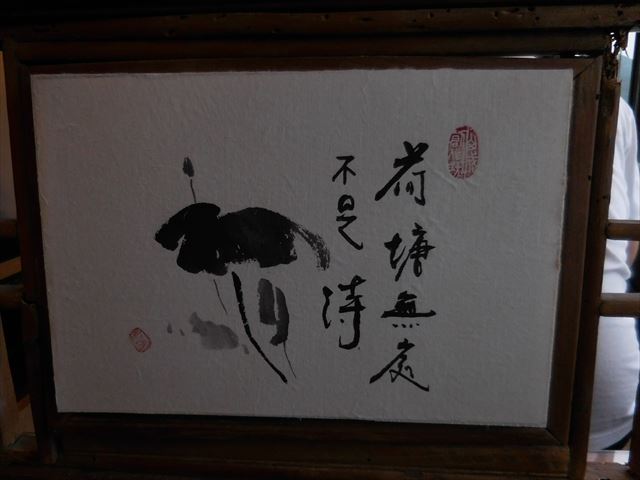 荷塘無處
不是詩